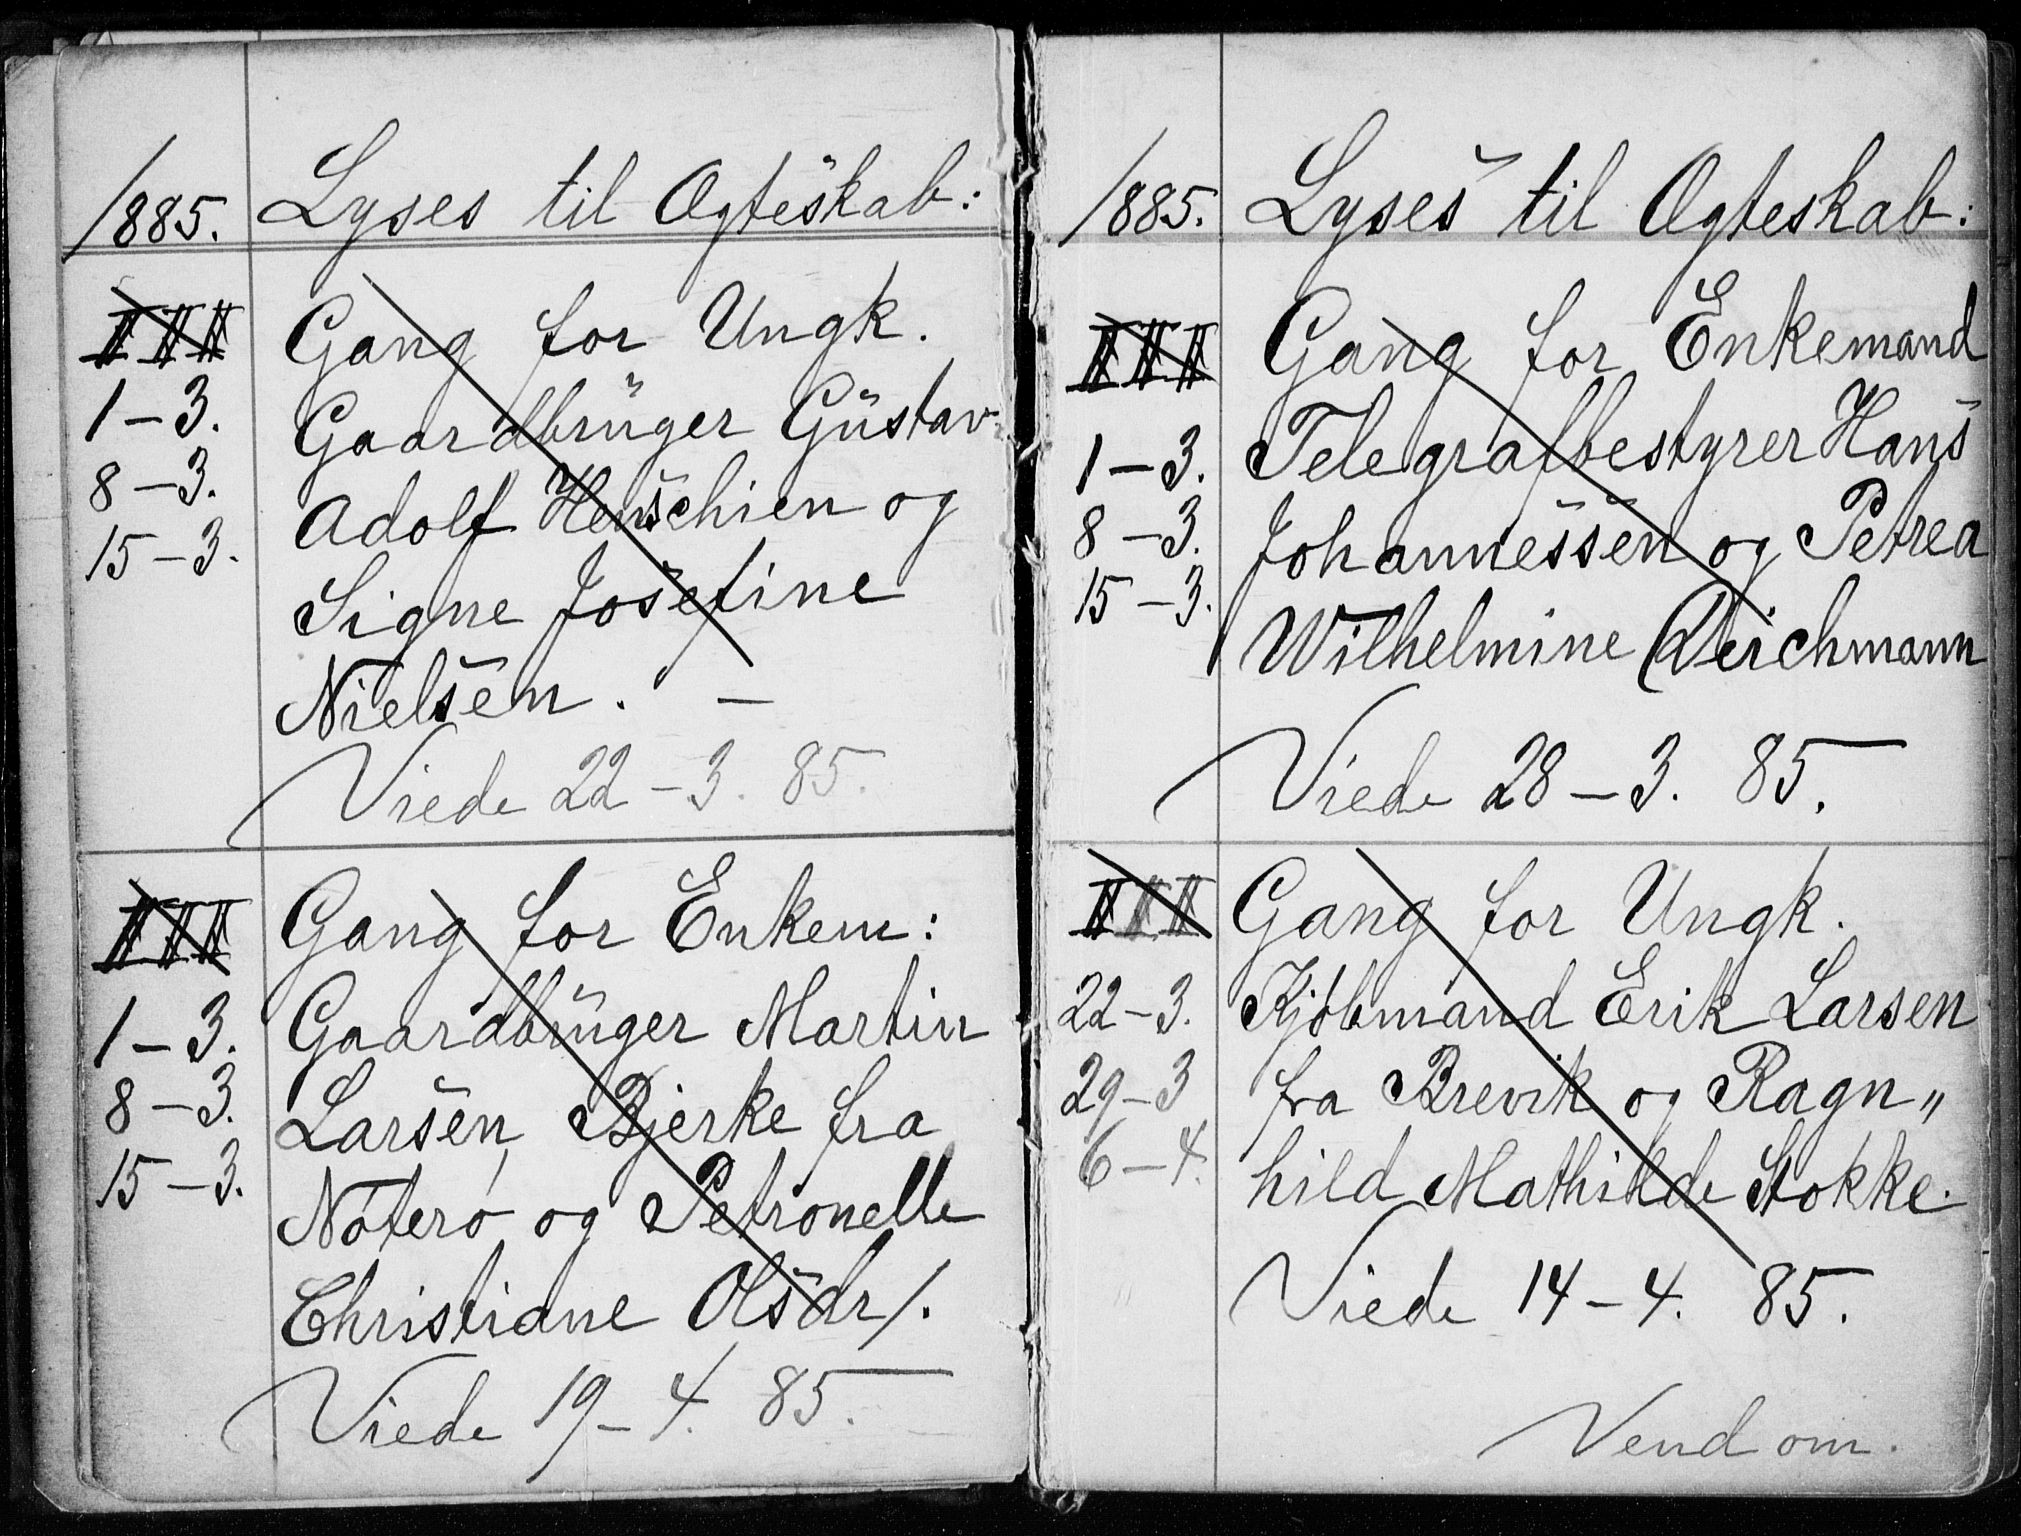 1885. Lyses til Ægteskab:
I II III Gang for Ungk.
1-3. Gaardbruger Gustav
8-3. Adolf Henschien og
15-3. Signe Josefine
Nielsen. –
Viede 22-3. 85.
I II III Gang for Enkem:
1-3. Gaardbruger Martin
8-3. Larsen Bjerke fra
15-3. Nøterø og Petronelle
Christiane Olsdr/.
Viede 19-4. 85.
1885. Lyses til Ægteskab:
I II III Gang for Enkemand
1-3. Telegrafbestyrer Hans
8-3. Johannessen og Petrea
15-3. Wilhelmine Deichmann
Viede 28-3. 85.
I II III Gang for Ungk.
22-3. Kjøbmand Erik Larsen
29-3 fra Brevik og Ragn„
6-4. hild Mathilde Stokke.
Viede 14-4. 85.
Vend om.